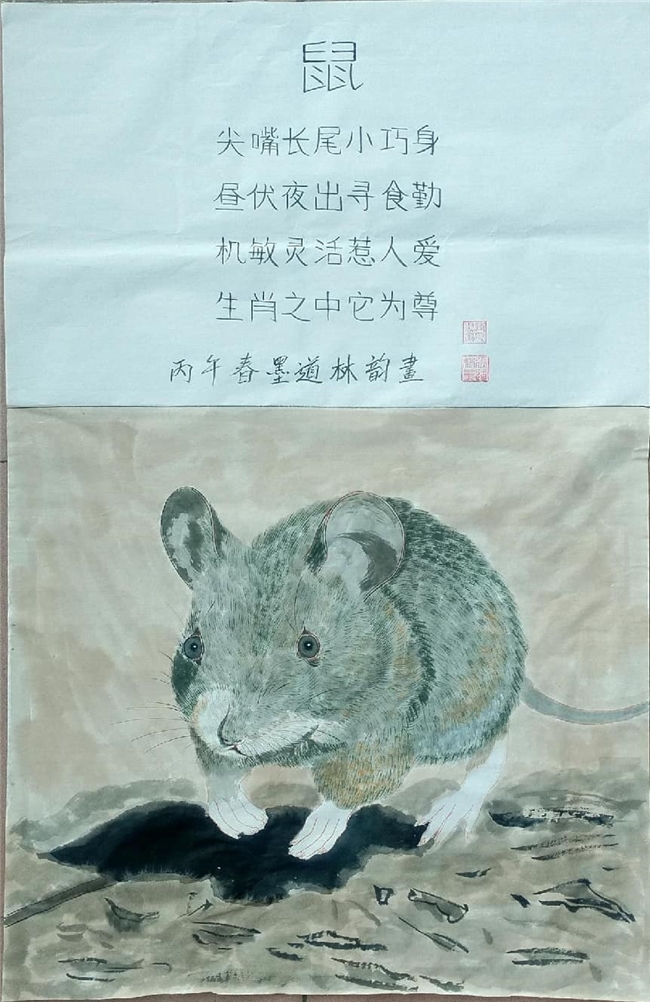 鼠
尖嘴长尾小巧身
昼伏夜出寻食勤
机敏灵活惹人爱
生肖之中它为尊
丙午春墨道林韵畫